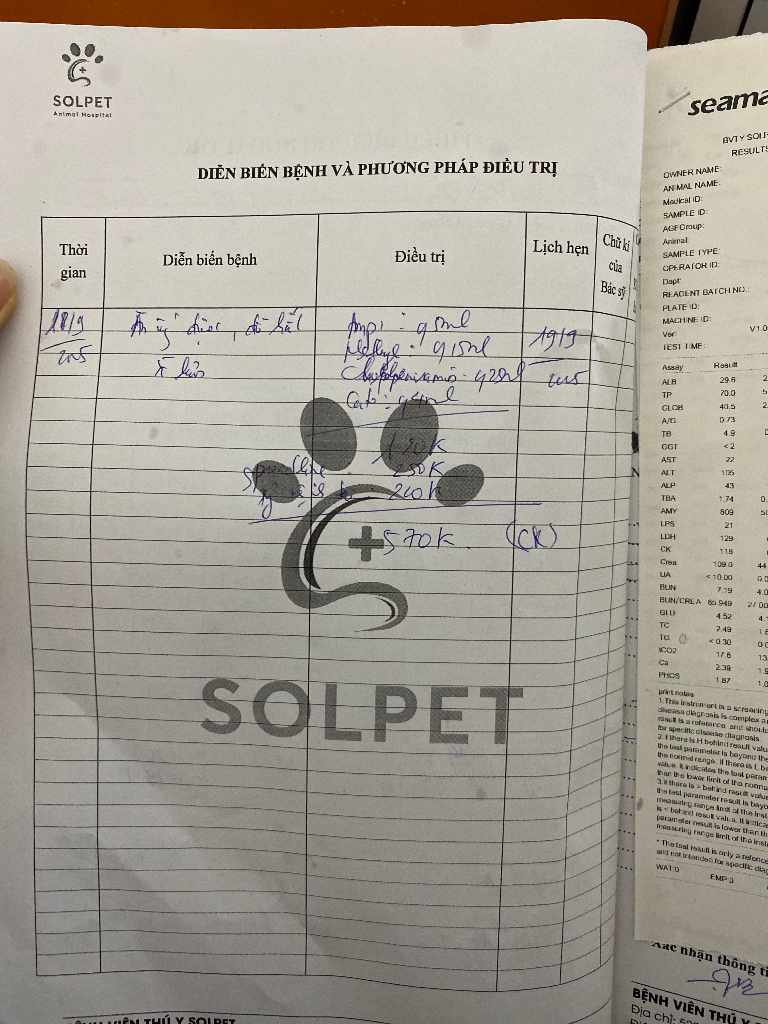 SOLPET
Animal Hospital
DIỄN BIẾN BỆNH VÀ PHƯƠNG PHÁP ĐIỀU TRỊ
Thời gian
Diễn biến bệnh
Điều trị
Lịch hẹn
Chữ kí của Bác sỹ
18/9
2025
19/9
2025
Ampi : 0,5ml
0,15ml
0,25ml
190K
250K
200K
570K (CK)
SOLPET
BỆNH VIỆN THÚ Y SOLPET
seama
BVTY SOL
RESULTS
OWNER NAME:
ANIMAL NAME:
Medical ID:
SAMPLE ID:
AGEGroup:
Animal:
SAMPLE TYPE:
OPERATOR ID:
Dept:
REAGENT BATCH NO.:
PLATE ID:
MACHINE ID:
Ver: V1.0
TEST TIME:
Assay Result
ALB 29.6
TP 70.0
GLOB 40.5
A/G 0.73
TB 4.9
GGT <2
AST 22
ALT 105
ALP 43
TBA 1.74
AMY 809
LPS 21
LDH 129
CK 118
Crea 109.0
UA <10.00
BUN 7.19
BUN/CREA 65.949
GLU 4.52
TC 2.49
TG <0.30
tCO2 17.6
Ca 2.39
PHOS 1.87
print notes
1.This instrument is a screening
disease diagnosis is complex a
result is a reference, and shoul
for specific disease diagnosis.
2.If there is H behind result valu
the test parameter is beyond the
the normal range. If there is L be
value, it indicates the test param
than the lower limit of the norma
3.If there is > behind result value
the test parameter result is beyo
measuring range limit of the inst
is < behind result value, it indica
parameter result is lower than th
measuring range limit of the inst
* The test result is only a refence
and not intended for specific diag
WAT:0 EMP:0
Xác nhận thông ti
BỆNH VIỆN THÚ Y
Địa chỉ: